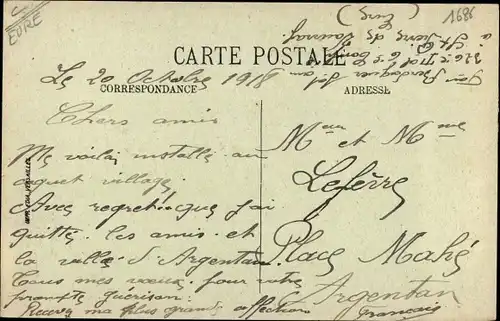 EURE
1686
CARTE POSTALE
CORRESPONDANCE
ADRESSE
Le 20 Octobre 1918
Chers amis
Me voilai installé au
coquet village.
Avec regret que j'ai
quitté les amis et
la ville d'Argentan.
Tous mes vœux pour votre
prompte guérison.
Recevez ma plus grande affection
français
Meur et Mme
Lefèvre
Place Mahé
Argentan
à St Pierre de
(Eure)